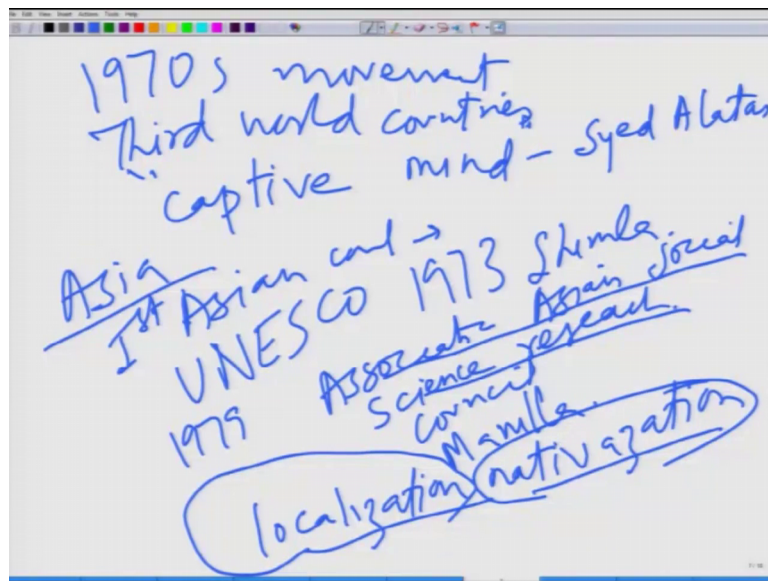 1970s movement
Third world countries
"captive mind - Syed Alatas
Asia
Ist Asian conf →
UNESCO 1973 Shimla
1979 Associatic Asian social
science reseach
council
Manilla.
localization nativazation